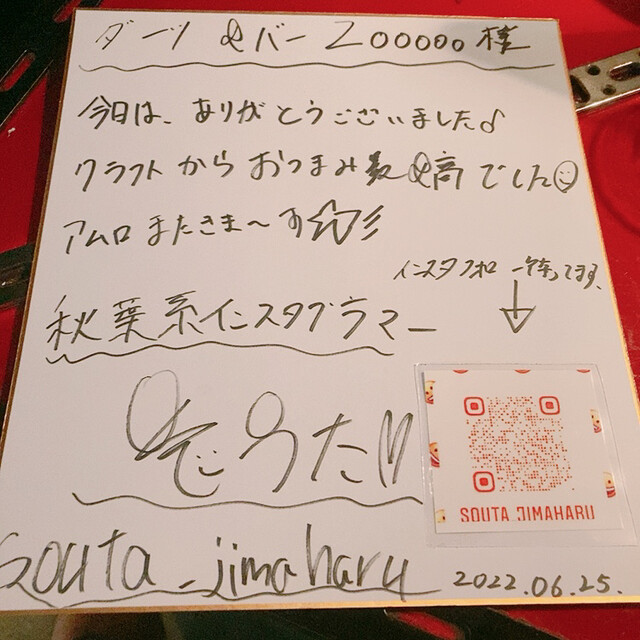 ダーツ &バー 200000様
今日は、ありがとうございました♪
クラフトからおつまみ最高でした
アムロまたきま〜す☆彡
インスタフォロー待ってます、
↓
秋葉系インスタグラマー
そうた!!
SOUTA_JIMAHARU
souta_jimaharu
2022.06.25.